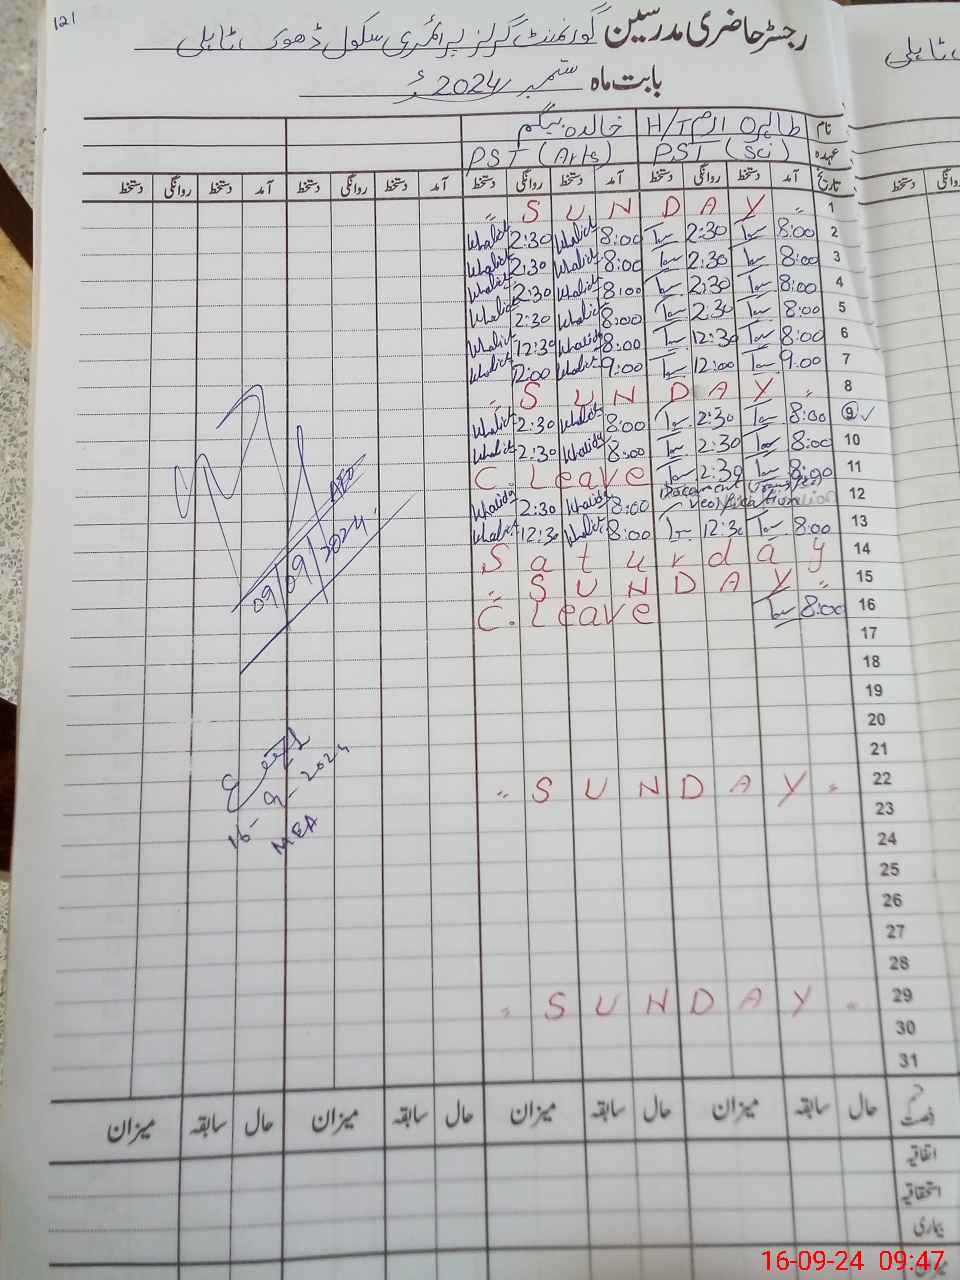 121
رجسٹر حاضری مدرسین گورنمنٹ گرلز پرائمری سکول ڈھوک ٹاہلی
بابت ماہ ستمبر 2024ء
نام طاہرہ ارم H/T خالدہ بیگم
عہدہ PST (Sci) PST (Arts)
تاریخ آمد دستخط روانگی دستخط آمد دستخط روانگی دستخط آمد دستخط روانگی دستخط آمد دستخط روانگی دستخط
1 " S U N D A Y "
2 8:00 2:30 8:00 Khalida 2:30 Khalida
3 8:00 2:30 8:00 Khalida 2:30 Khalida
4 8:00 2:30 8:00 Khalida 2:30 Khalida
5 8:00 2:30 8:00 Khalida 2:30 Khalida
6 8:00 12:30 8:00 Khalida 12:30 Khalida
7 9:00 12:00 9:00 Khalida 12:00 Khalida
8 " S U N D A Y "
9 ✓ 8:00 2:30 8:00 Khalida 2:30 Khalida
10 8:00 2:30 8:00 Khalida 2:30 Khalida
11 8:00 2:30 C. Leave
12 8:00 Khalida 2:30 Khalida
13 8:00 12:30 8:00 Khalida 12:30 Khalida
14 S a t u r d a y
15 " S U N D A Y "
16 8:00 C. Leave
17
18
19
20
21
22 " S U N D A Y "
23
24
25
26
27
28
29 " S U N D A Y "
30
31
AEO
09/09/2024
16-9-2024
MEA
قسم رخصت حال سابقہ میزان حال سابقہ میزان حال سابقہ میزان حال سابقہ میزان
اتفاقیہ
استحقاقیہ
بیماری
میزان
ٹاہلی
دستخط روانگی
16-09-24 09:47